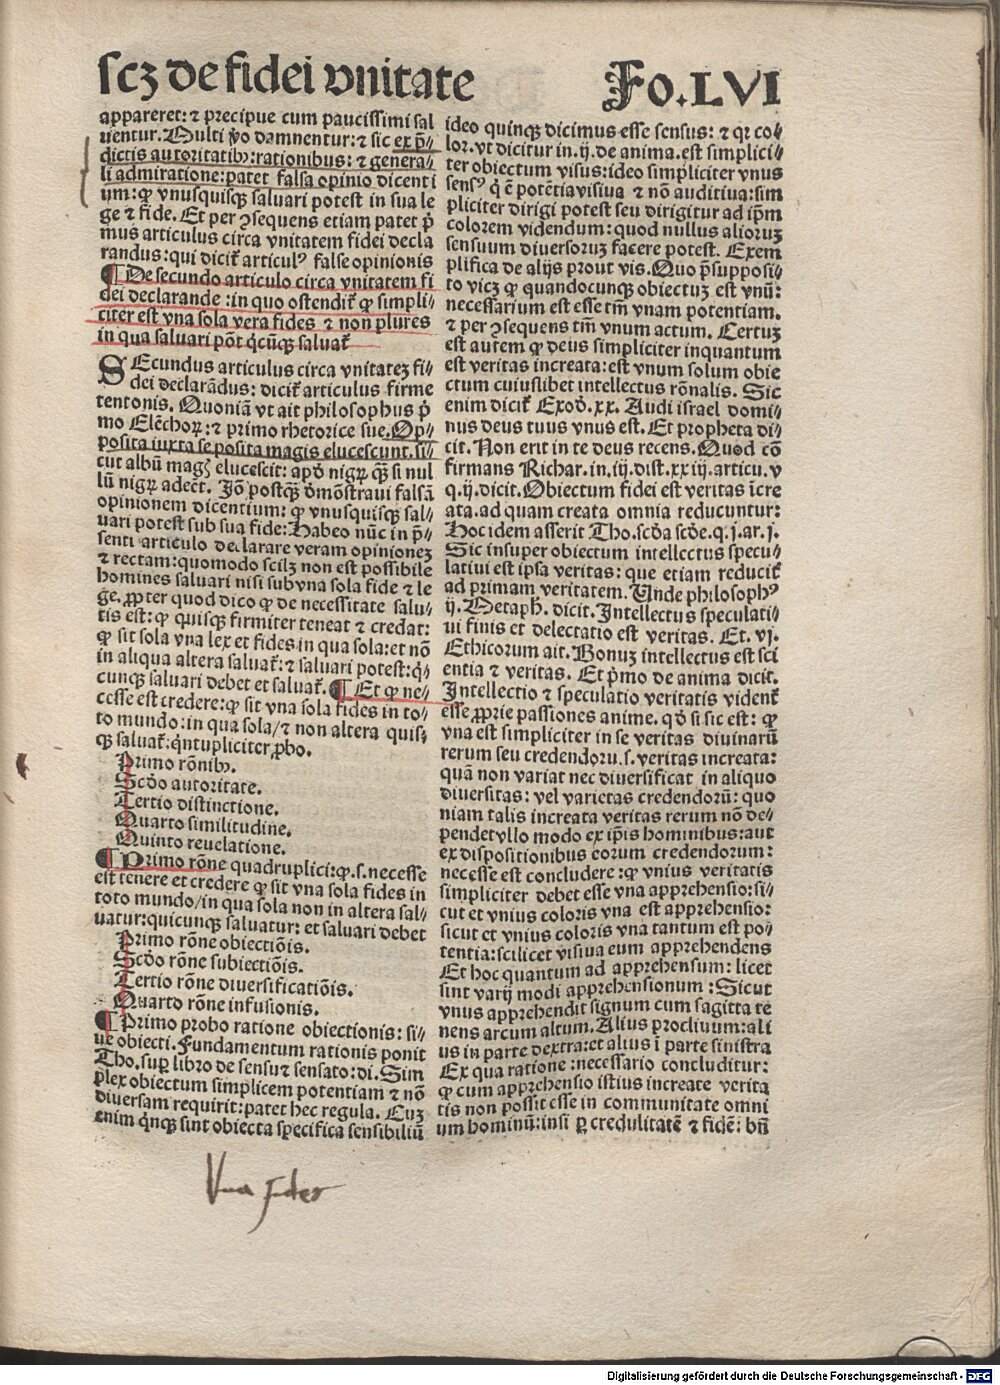 scꝫ de fidei vnitate
Fo.LVI
appareret: ⁊ precipue cum paucissimi sal
uentur. Multi ṽo damnentur: ⁊ sic ex p̄-
dictis autoritatibꝫ: rationibus: ⁊ genera-
li admiratione: patet falsa opinio dicenti
um: ꝙ vnusquisqꝫ saluari potest in sua le
ge ⁊ fide. Et per ꝯsequens etiam patet p̓
mus articulus circa vnitatem fidei decla
randus: qui dicit̄ articulꝰ false opinionis
¶ De secundo articulo circa vnitatem fi
dei declarande: in quo ostendit̄ ꝙ simpli-
citer est vna sola vera fides ⁊ non plures
in qua saluari pōt q̓cūqꝫ saluat̄
SEcundus articulus circa vnitateꝫ fi-
dei declarādus: dicit̄ articulus firme
tentonis. Quoniā vt ait philosophus p̓
mo Elēchoꝝ: ⁊ primo rhetorice sue. Op-
posita iuxta se posita magis elucescunt. si-
cut albū magꝭ elucescit: apd̓ nigꝝ qꝫ si nul
lū nigꝝ adeēt. Jō postqꝫ dmōstraui falsā
opinionem dicentium: ꝙ vnusquisqꝫ sal-
uari potest sub sua fide: Habeo nūc in p̄-
senti articulo declarare veram opinioneꝫ
⁊ rectam: quomodo scilꝫ non est possibile
homines saluari nisi sub vna sola fide ⁊ le
ge. ꝓpter quod dico ꝙ de necessitate salu-
tis est: ꝙ quisqꝫ firmiter teneat ⁊ credat:
ꝙ sit sola vna lex et fides in qua sola: et nō
in aliqua altera saluat̄: ⁊ saluari potest: q̓-
cunqꝫ saluari debet et saluat̄. ¶ Et ꝙ ne-
cesse est credere: ꝙ sit vna sola fides in to-
to mundo: in qua sola/ ⁊ non altera quis-
qꝫ saluat̄: q̓ntupliciter ꝓbo.
Primo rōnibꝫ.
Scd̓o autoritate.
Tertio distinctione.
Quarto similitudine.
Quinto reuelatione.
¶ Primo rōne quadruplici: ꝙ.s. necesse
est tenere et credere ꝙ sit vna sola fides in
toto mundo/ in qua sola non in altera sal-
uatur: quicunqꝫ saluatur: et saluari debet
Primo rōne obiectiōis.
Scd̓o rōne subiectiōis.
Tertio rōne diuersificatiōis.
Quarto rōne infusionis.
¶ Primo probo ratione obiectionis: si-
ue obiecti. Fundamentum rationis ponit
Tho. suꝑ libro de sensu ⁊ sensato: di. Sim
plex obiectum simplicem potentiam ⁊ nō
diuersam requirit: patet hec regula. Cuꝫ
enim q̓nqꝫ sint obiecta specifica sensibiliū
ideo quinqꝫ dicimus esse sensus: ⁊ qꝛ co-
lor. vt dicitur in. ij. de anima. est simplici-
ter obiectum visus: ideo simpliciter vnus
sensꝰ q̓ ē potētia visiua ⁊ nō auditiua: sim
pliciter dirigi potest seu dirigitur ad ip̄m
colorem videndum: quod nullus alioruꝫ
sensuum diuersoruꝫ facere potest. Exem
plifica de alijs prout vis. Quo p̄supposi-
to vicꝫ ꝙ quandocunqꝫ obiectuꝫ est vnū:
necessarium est esse tm̄ vnam potentiam.
⁊ per ꝯsequens tm̄ vnum actum. Certuꝫ
est autem ꝙ deus simpliciter inquantum
est veritas increata: est vnum solum obie
ctum cuiuslibet intellectus rōnalis. Sic
enim dicit̄ Exod̓. xx. Audi israel domi-
nus deus tuus vnus est. Et propheta di-
cit. Non erit in te deus recens. Quod cō
firmans Richar. in. iij. dist. xx iij. articu. v
q. ij. dicit. Obiectum fidei est veritas īcre
ata. ad quam creata omnia reducuntur:
Hoc idem asserit Tho. scd̓a scd̓e. q. j. ar. j.
Sic insuper obiectum intellectus specu-
latiui est ipsa veritas: que etiam reducit̄
ad primam veritatem. Unde philosophꝰ
ij. Metaph. dicit. Intellectus speculati-
ui finis et delectatio est veritas. Et. vj.
Ethicorum ait. Bonuꝫ intellectus est sci
entia ⁊ veritas. Et p̓mo de anima dicit.
Intellectio ⁊ speculatio veritatis vident̄
esse ꝓprie passiones anime. qd̓ si sic est: ꝙ
vna est simpliciter in se veritas diuinarū
rerum seu credendorū.s. veritas increata:
quā non variat nec diuersificat in aliquo
diuersitas: vel varietas credendorū: quo
niam talis increata veritas rerum nō de-
pendet vllo modo ex ip̄is hominibus: aut
ex dispositionibus eorum credendorum:
necesse est concludere: ꝙ vnius veritatis
simpliciter debet esse vna apprehensio: si-
cut et vnius coloris vna est apprehensio:
sicut et vnius coloris vna tantum est po-
tentia: scilicet visiua eum apprehendens
Et hoc quantum ad apprehensum: licet
sint varij modi apprehensionum: Sicut
vnus apprehendit signum cum sagitta te
nens arcum altum. Alius procliuum: ali
us in parte dextra: et alius ī parte sinistra
Ex qua ratione: necessario concluditur:
ꝙ cum apprehensio istius increate verita
tis non possit esse in communitate omni
um hominū: insi ꝑ credulitatē ⁊ fidē: bn̄
Vna fides
Digitalisierung gefördert durch die Deutsche Forschungsgemeinschaft - DFG